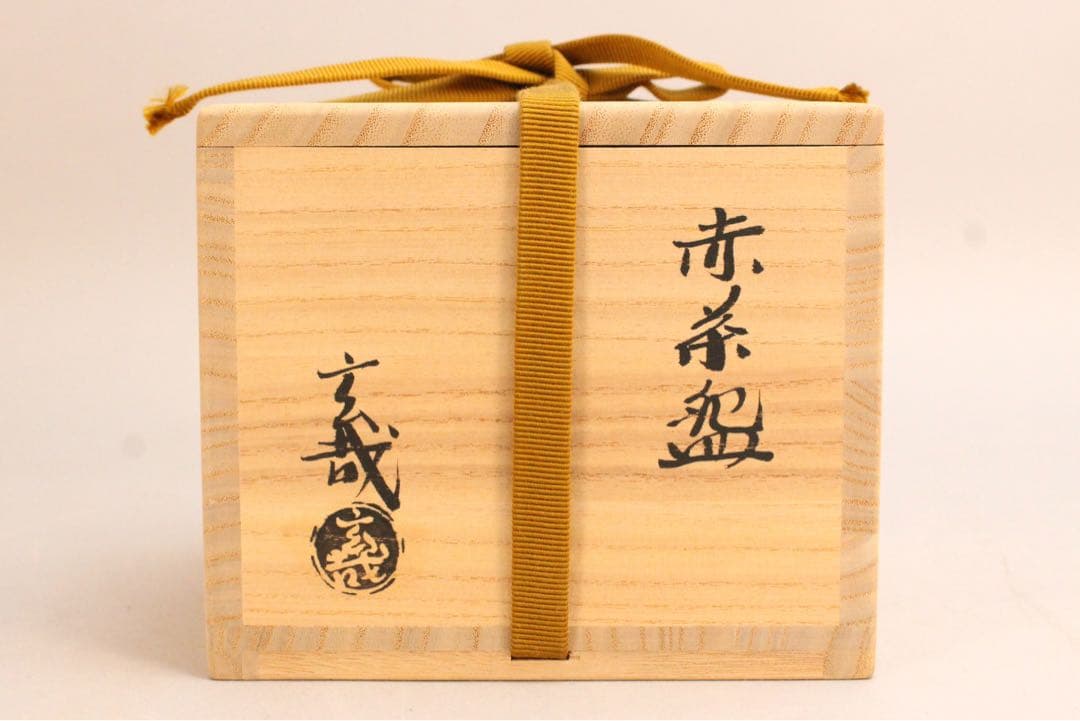 赤茶盌
玄哉
玄哉